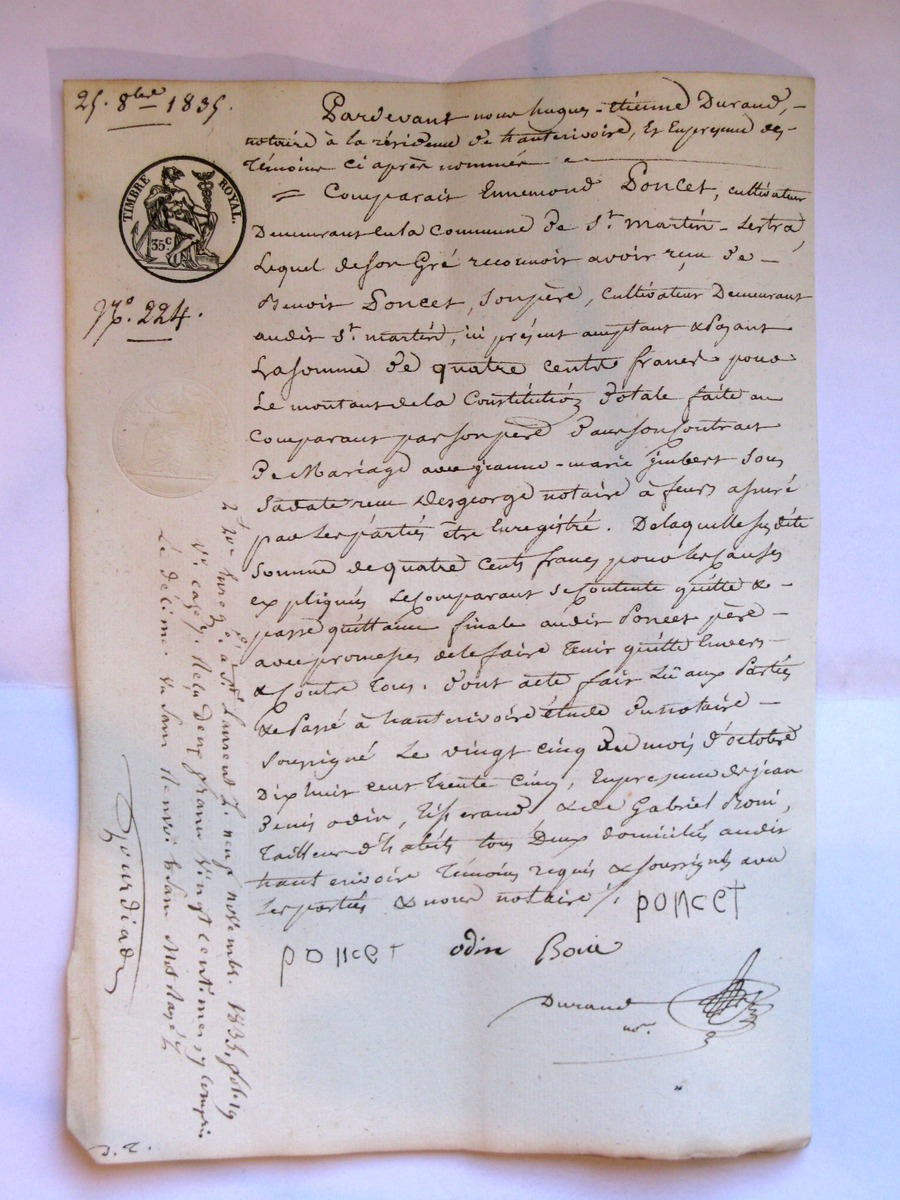 25. 8bre 1835.
TIMBRE ROYAL.
35c
N°. 224.
Pardevant nous hugues-étienne Durand,
notaire à la résidence de hauterivoire, Et En présence des
Témoins ci après nommés
= Comparait Ennemond Poncet, cultivateur
Demeurant en la Commune de St. martin-Lestra,
Lequel de son Gré reconnoit avoir reçu de
Benoit Poncet, son père, Cultivateur Demeurant
audit St. martin, ici présent acceptant & Payant
La somme de quatre cents francs pour
Le montant de la Constitution Dotale faite au
Comparant par son père Dans son Contrait
De Mariage avec jeanne-marie jmbert sous
Sa date reçu Desgeorge notaire à feurs assuré
par Les parties être Enregistré. De laquelle susdite
Somme de quatre Cents francs pour Les causes
expliqués Le Comparant se Contente quitte &
passe quittance finale audit Poncet père
avec promesses de le faire Tenir quitte Envers
& Contre Tous. Dont acte fait Lû aux Parties
& Passé à hauterivoire étude du notaire
soussigné Le vingt cinq du mois d'octobre
Dix huit cent Trente Cinq, En présence de jean
Denis odin, Tisserand & de Gabriel Boni,
Tailleur d'habits tous Deux domiciliés audit
hauterivoire Témoins requis & soussignés avec
Les parties & nous notaire.
poncet
poncet odin
Durand
nore.
à St Laurent L. neuf novembre 1835, fol. 19
deux francs Vingt centimes y compris
Le décime.
Gourdiad
D. T.